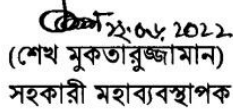 ২২.০৮.২০২২
(শেখ মুকতারুজ্জামান)
সহকারী মহাব্যবস্থাপক